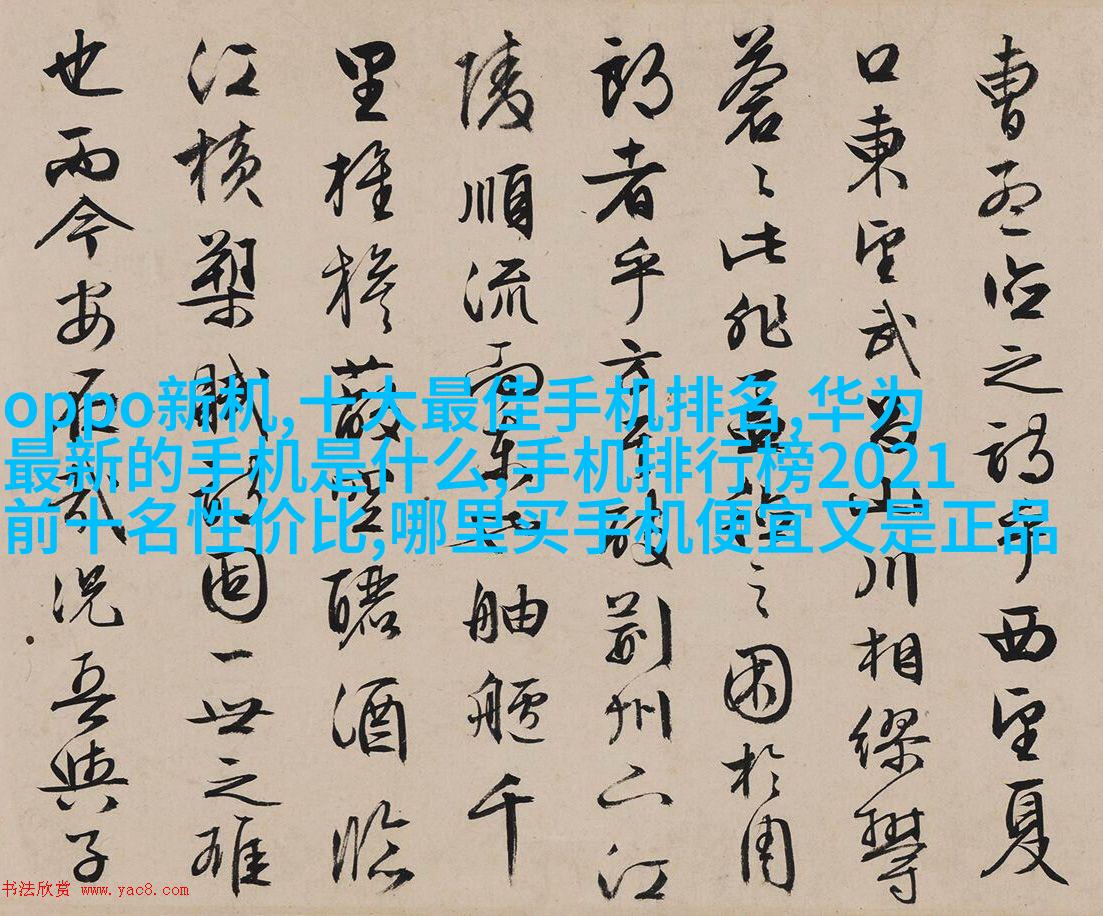 曹孟德之詩乎西望夏
口東望武昌山川相繆鬱
蒼〻此非孟德之困於周
郎者乎方其破荊州下江
陵順流而東也舳艫千
里旌旗蔽空釃酒臨
江橫槊賦詩固一世之雄
也而今安在哉況吾與子
oppo新机,十大最佳手机排名,华为
最新的手机是什么,手机排行榜2021
前十名性价比,哪里买手机便宜又是正品
书法欣赏 www.yac8.com